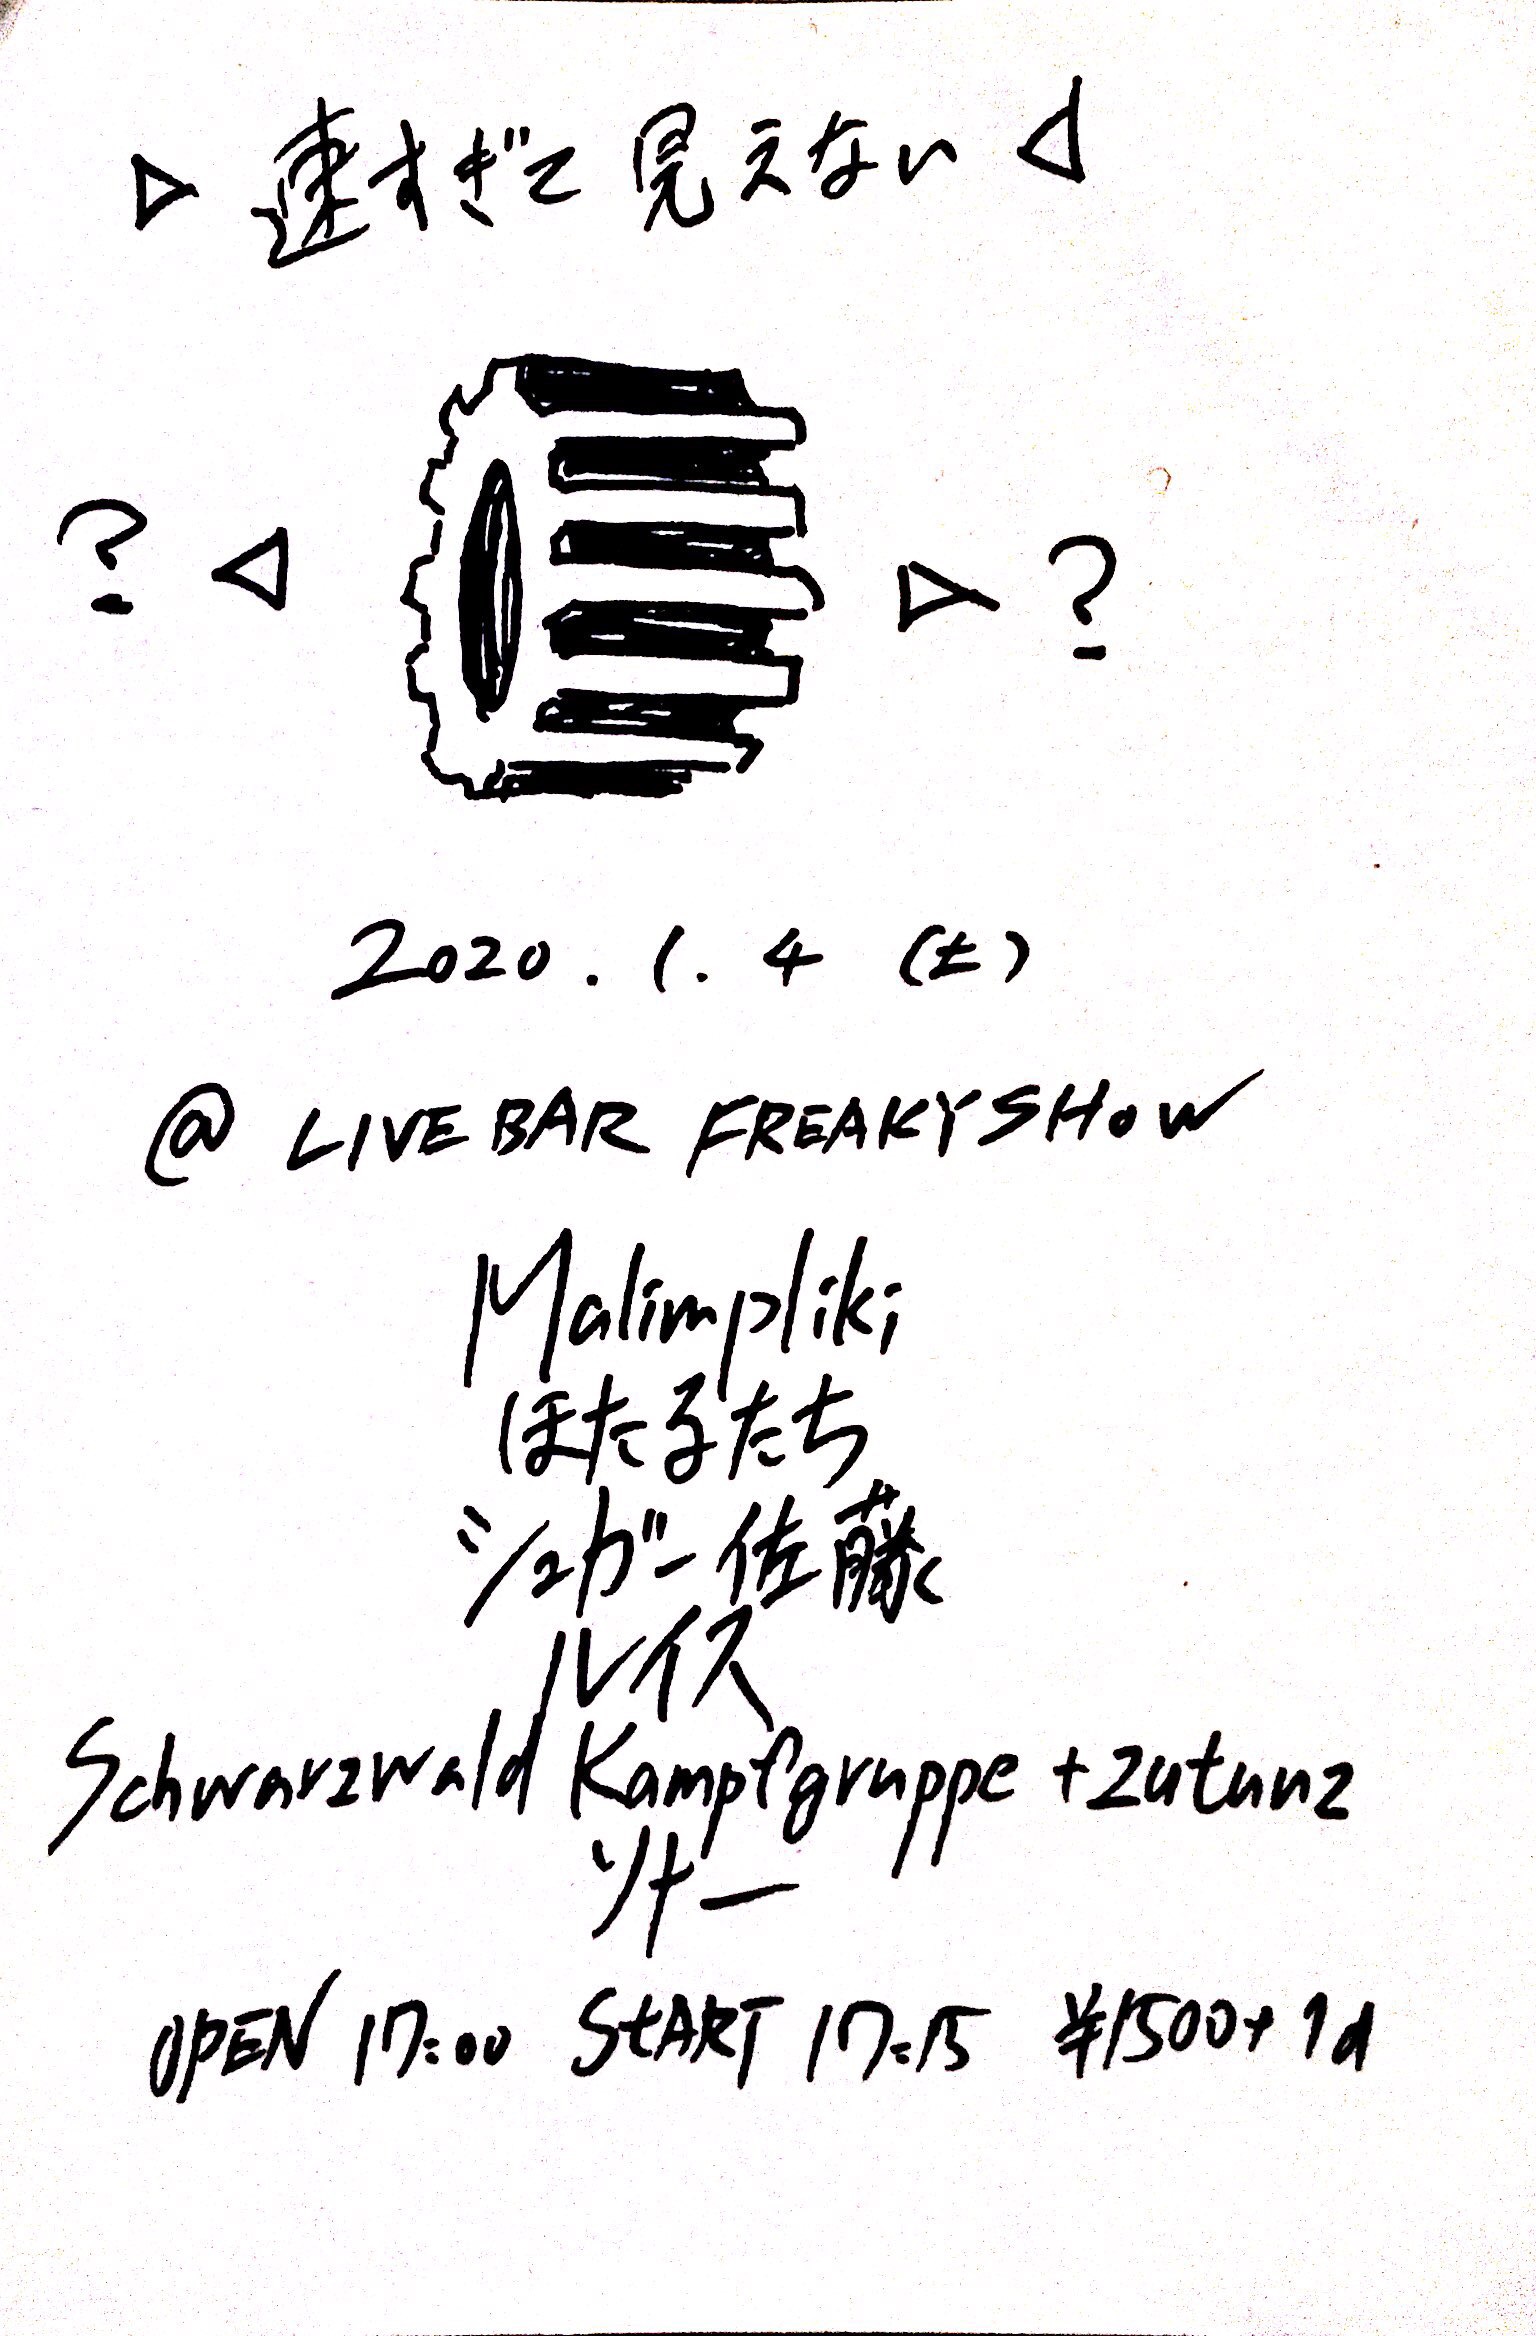 ▷ 速すぎて見えない ◁
? ◁ ▷ ?
2020.1.4 (土)
@ LIVE BAR FREAKYSHOW
Malimpliki
ほたるたち
シュガー佐藤
ルイス
Schwarzwald Kampfgruppe + zutunz
ソナー
OPEN 17:00 START 17:15 ¥1500+1d